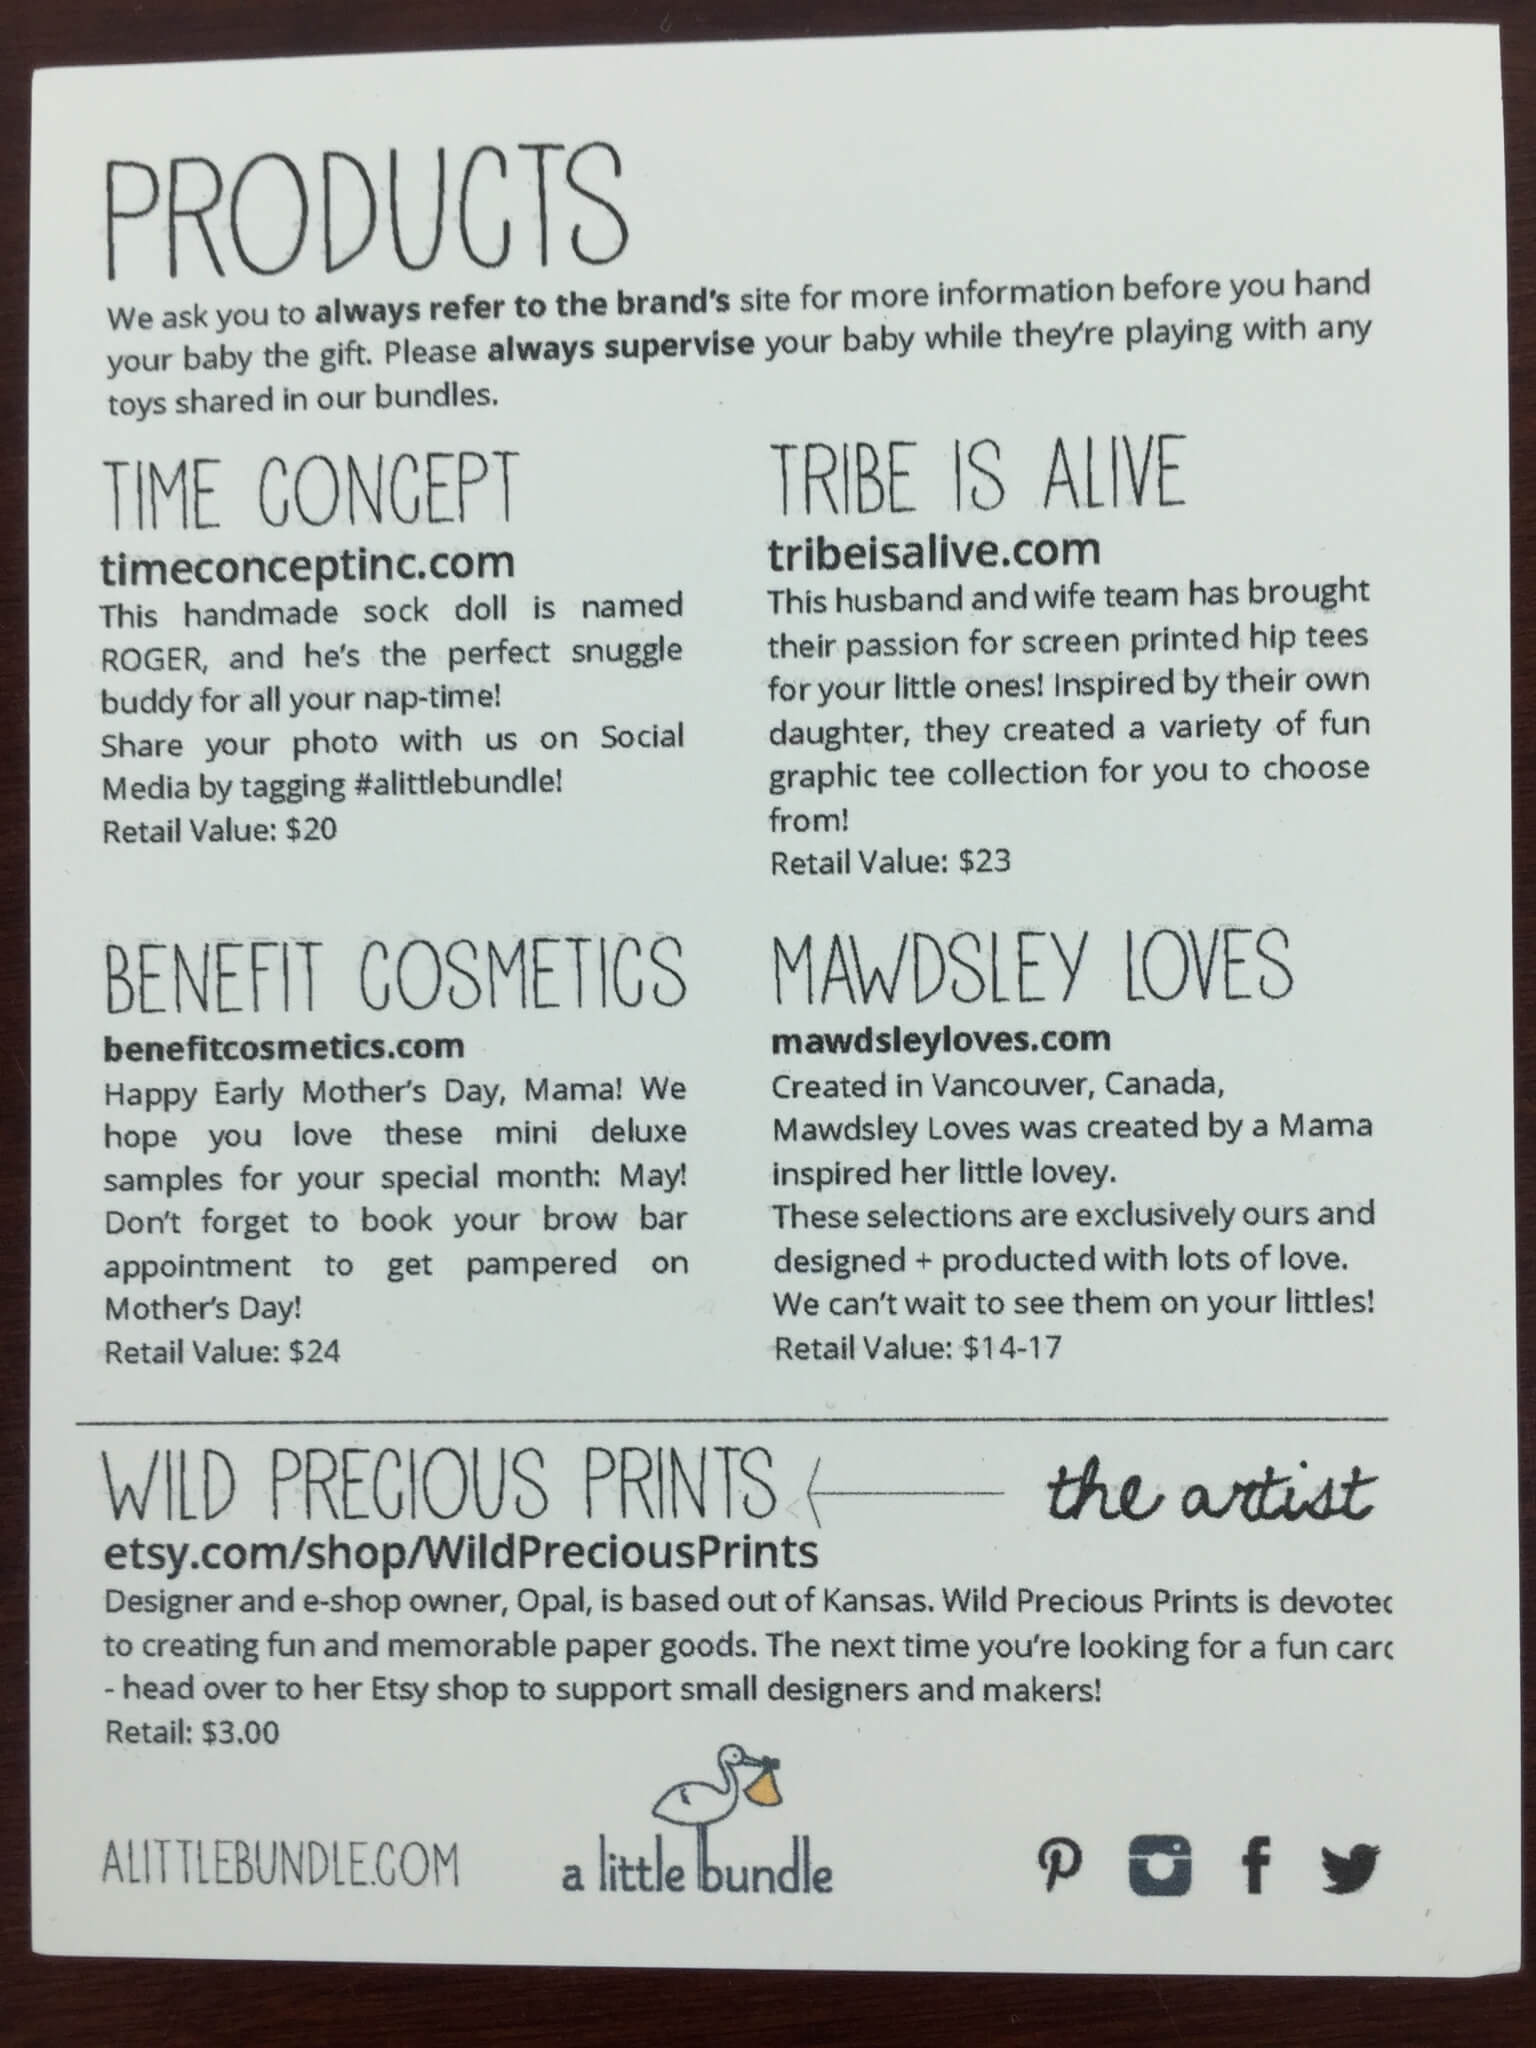 PRODUCTS
We ask you to always refer to the brand's site for more information before you hand
your baby the gift. Please always supervise your baby while they're playing with any
toys shared in our bundles.
TIME CONCEPT
timeconceptinc.com
This handmade sock doll is named
ROGER, and he's the perfect snuggle
buddy for all your nap-time!
Share your photo with us on Social
Media by tagging #alittlebundle!
Retail Value: $20
TRIBE IS ALIVE
tribeisalive.com
This husband and wife team has brought
their passion for screen printed hip tees
for your little ones! Inspired by their own
daughter, they created a variety of fun
graphic tee collection for you to choose
from!
Retail Value: $23
BENEFIT COSMETICS
benefitcosmetics.com
Happy Early Mother's Day, Mama! We
hope you love these mini deluxe
samples for your special month: May!
Don't forget to book your brow bar
appointment to get pampered on
Mother's Day!
Retail Value: $24
MAWDSLEY LOVES
mawdsleyloves.com
Created in Vancouver, Canada,
Mawdsley Loves was created by a Mama
inspired her little lovey.
These selections are exclusively ours and
designed + producted with lots of love.
We can't wait to see them on your littles!
Retail Value: $14-17
WILD PRECIOUS PRINTS the artist
etsy.com/shop/WildPreciousPrints
Designer and e-shop owner, Opal, is based out of Kansas. Wild Precious Prints is devoted
to creating fun and memorable paper goods. The next time you're looking for a fun card
- head over to her Etsy shop to support small designers and makers!
Retail: $3.00
ALITTLEBUNDLE.COM
a little bundle